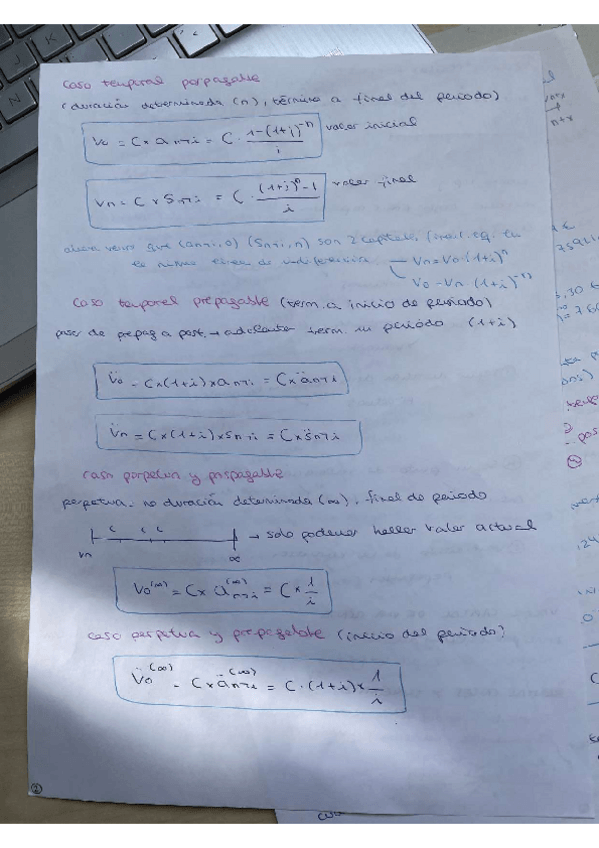 caso temporal pospagable
(duración determinada (n), término a final del periodo)
V₀ = C × a n¬i = C · (1-(1+i)⁻ⁿ)/i valor inicial
Vn = C × S n¬i = C · ((1+i)ⁿ-1)/i valor final
que (an¬i, 0) (Sn¬i, n) son 2
Vn = V₀ · (1+i)ⁿ
V₀ = Vn (1+i)⁻ⁿ
caso temporal prepagable (term. a inicio de periodo)
pasar de prepag a post. → adelantar term. un periodo (1+i)
V̈₀ = C×(1+i)×an¬i = C×än¬i
V̈n = C×(1+i)×Sn¬i = C×S̈n¬i
caso perpetua y pospagable
perpetua. no duración determinada (∞). final de periodo
c c c
→ solo podemos hallar valor actual
V₀
∞
V₀⁽∞⁾ = C× a⁽∞⁾n¬i = C × 1/i
caso perpetua y prepagable (inicio del periodo)
V̈₀⁽∞⁾ = C×ä⁽∞⁾n¬i = C·(1+i)× 1/i
2